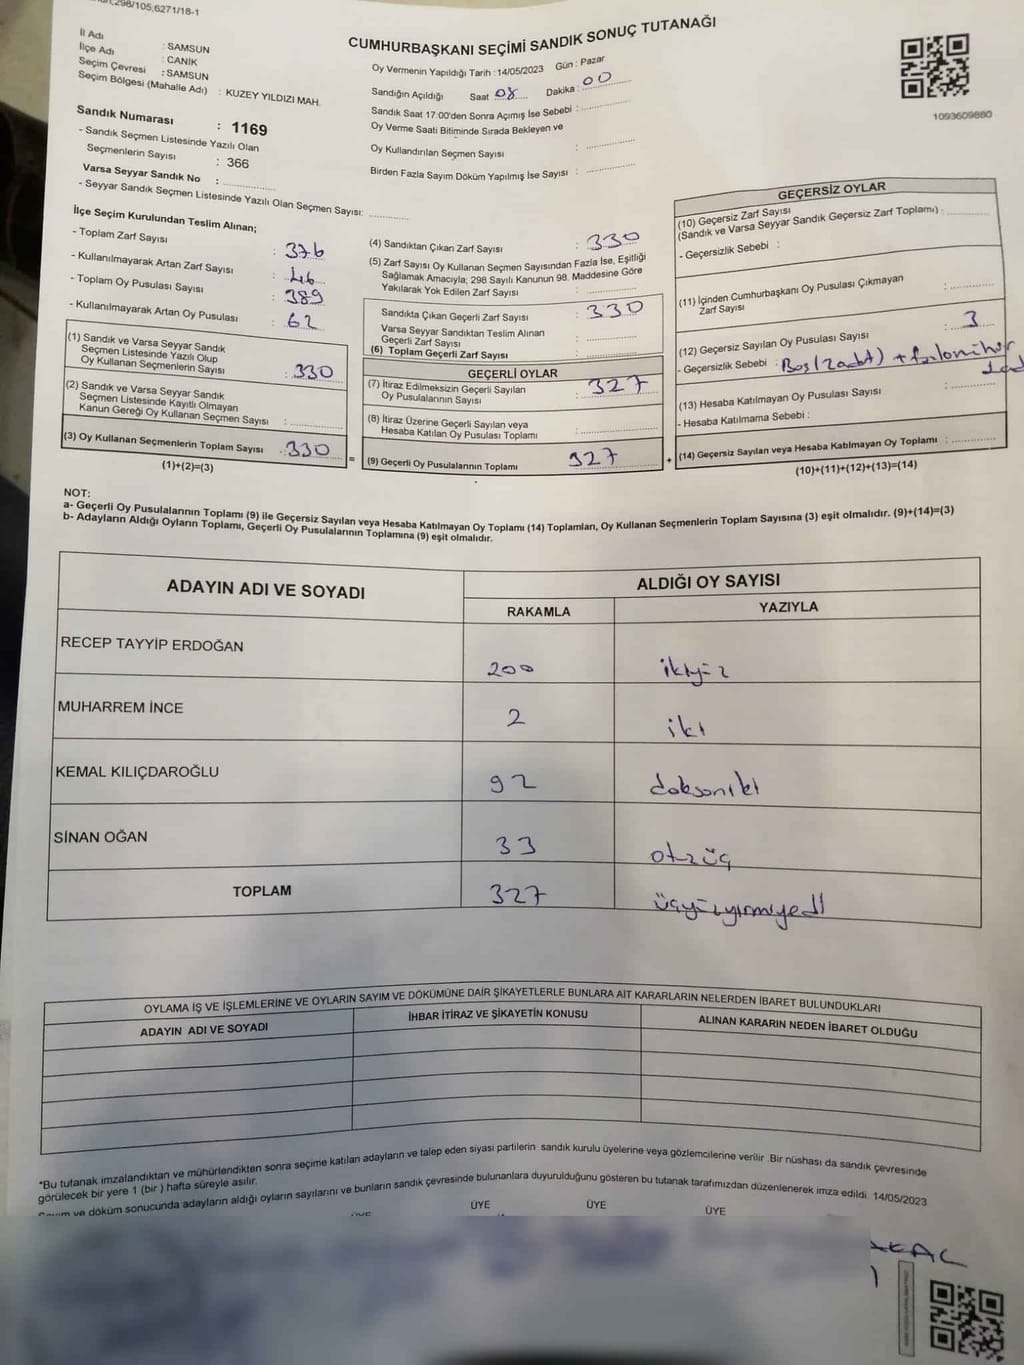 298/105,6271/18-1
CUMHURBAŞKANI SEÇİMİ SANDIK SONUÇ TUTANAĞI
İl Adı : SAMSUN
İlçe Adı : CANİK
Seçim Çevresi : SAMSUN
Seçim Bölgesi (Mahalle Adı) : KUZEY YILDIZI MAH.
Sandık Numarası : 1169
- Sandık Seçmen Listesinde Yazılı Olan
Seçmenlerin Sayısı : 366
Varsa Seyyar Sandık No :
- Seyyar Sandık Seçmen Listesinde Yazılı Olan Seçmen Sayısı:
Oy Vermenin Yapıldığı Tarih :14/05/2023 Gün : Pazar
Sandığın Açıldığı Saat 08 Dakika : 00
Sandık Saat 17.00'den Sonra Açımış İse Sebebi :
Oy Verme Saati Bitiminde Sırada Bekleyen ve
Oy Kullandırılan Seçmen Sayısı :
Birden Fazla Sayım Döküm Yapılmış İse Sayısı :
1093609880
İlçe Seçim Kurulundan Teslim Alınan;
- Toplam Zarf Sayısı : 376
- Kullanılmayarak Artan Zarf Sayısı : 46
- Toplam Oy Pusulası Sayısı : 389
- Kullanılmayarak Artan Oy Pusulası : 62
(1) Sandık ve Varsa Seyyar Sandık
Seçmen Listesinde Yazılı Olup
Oy Kullanan Seçmenlerin Sayısı : 330
(2) Sandık ve Varsa Seyyar Sandık
Seçmen Listesinde Kayıtlı Olmayan
Kanun Gereği Oy Kullanan Seçmen Sayısı :
(3) Oy Kullanan Seçmenlerin Toplam Sayısı : 330
(1)+(2)=(3)
(4) Sandıktan Çıkan Zarf Sayısı : 330
(5) Zarf Sayısı Oy Kullanan Seçmen Sayısından Fazla İse, Eşitliği
Sağlamak Amacıyla; 298 Sayılı Kanunun 98. Maddesine Göre
Yakılarak Yok Edilen Zarf Sayısı :
Sandıkta Çıkan Geçerli Zarf Sayısı : 330
Varsa Seyyar Sandıktan Teslim Alınan
Geçerli Zarf Sayısı :
(6) Toplam Geçerli Zarf Sayısı :
GEÇERLİ OYLAR
(7) İtiraz Edilmeksizin Geçerli Sayılan
Oy Pusulalarının Sayısı : 327
(8) İtiraz Üzerine Geçerli Sayılan veya
Hesaba Katılan Oy Pusulası Toplamı :
= (9) Geçerli Oy Pusulalarının Toplamı 327
GEÇERSİZ OYLAR
(10) Geçersiz Zarf Sayısı
(Sandık ve Varsa Seyyar Sandık Geçersiz Zarf Toplamı) :
- Geçersizlik Sebebi :
(11) İçinden Cumhurbaşkanı Oy Pusulası Çıkmayan
Zarf Sayısı :
(12) Geçersiz Sayılan Oy Pusulası Sayısı : 3
- Geçersizlik Sebebi : Boş (2 adet) +
(13) Hesaba Katılmayan Oy Pusulası Sayısı :
- Hesaba Katılmama Sebebi :
+ (14) Geçersiz Sayılan veya Hesaba Katılmayan Oy Toplamı :
(10)+(11)+(12)+(13)=(14)
NOT:
a- Geçerli Oy Pusulalarının Toplamı (9) ile Geçersiz Sayılan veya Hesaba Katılmayan Oy Toplamı (14) Toplamları, Oy Kullanan Seçmenlerin Toplam Sayısına (3) eşit olmalıdır. (9)+(14)=(3)
b- Adayların Aldığı Oyların Toplamı, Geçerli Oy Pusulalarının Toplamına (9) eşit olmalıdır.
ADAYIN ADI VE SOYADI
ALDIĞI OY SAYISI
RAKAMLA YAZIYLA
RECEP TAYYİP ERDOĞAN 200 ikiyüz
MUHARREM İNCE 2 iki
KEMAL KILIÇDAROĞLU 92 doksaniki
SİNAN OĞAN 33 otuzüç
TOPLAM 327 üçyüzyirmiyedi
OYLAMA İŞ VE İŞLEMLERİNE VE OYLARIN SAYIM VE DÖKÜMÜNE DAİR ŞİKAYETLERLE BUNLARA AİT KARARLARIN NELERDEN İBARET BULUNDUKLARI
ADAYIN ADI VE SOYADI İHBAR İTİRAZ VE ŞİKAYETİN KONUSU ALINAN KARARIN NEDEN İBARET OLDUĞU
*Bu tutanak imzalandıktan ve mühürlendikten sonra seçime katılan adayların ve talep eden siyasi partilerin sandık kurulu üyelerine veya gözlemcilerine verilir .Bir nüshası da sandık çevresinde
görülecek bir yere 1 (bir ) hafta süreyle asılır.
Sayım ve döküm sonucunda adayların aldığı oyların sayılarını ve bunların sandık çevresinde bulunanlara duyurulduğunu gösteren bu tutanak tarafımızdan düzenlenerek imza edildi. 14/05/2023
ÜYE ÜYE ÜYE ÜYE